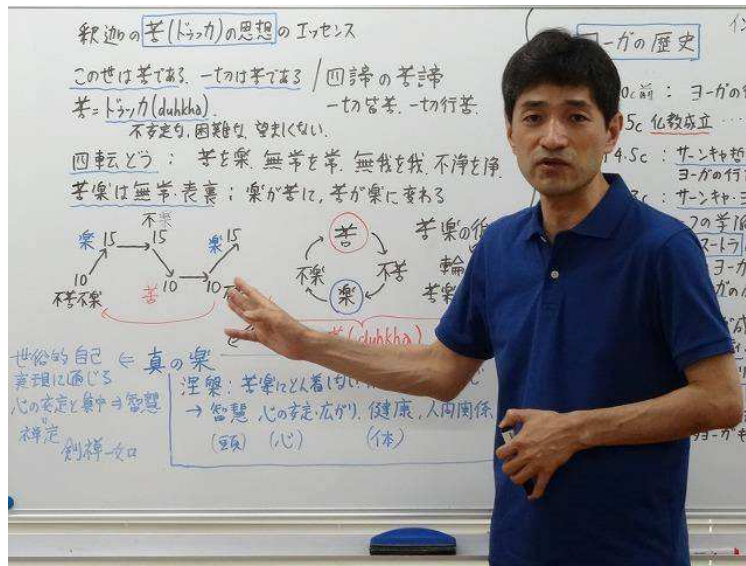 釈迦の苦(ドゥッカ)の思想のエッセンス
この世は苦である. 一切は苦である / 四諦の苦諦
苦=ドゥッカ(duhkha). 一切皆苦. 一切行苦.
不安定な, 困難な, 望ましくない.
四転どう: 苦を楽 無常を常. 無我を我. 不浄を浄.
苦楽は無常・表裏; 楽が苦に, 苦が楽に変わる
不楽
楽 15 → 15 楽 15
10 苦 10 → 10
不苦不楽
苦
不楽 不苦
楽
苦楽の
輪
苦楽
苦(duhkha)
世俗的自己 ⇐ 真の楽
真理に通じる
心の安定と集中⇒智慧
禅定
剣禅一如
涅槃: 苦楽にとん着しない
→ 智慧 心の安定・広がり, 健康, 人間関係
(頭) (心) (体)
ヨーガの歴史
前: ヨーガの
5c 仏教成立 …
4.5c: サーンキャ哲
ヨーガの行
: サーンキャ・ヨ
スートラ
ヨーガ